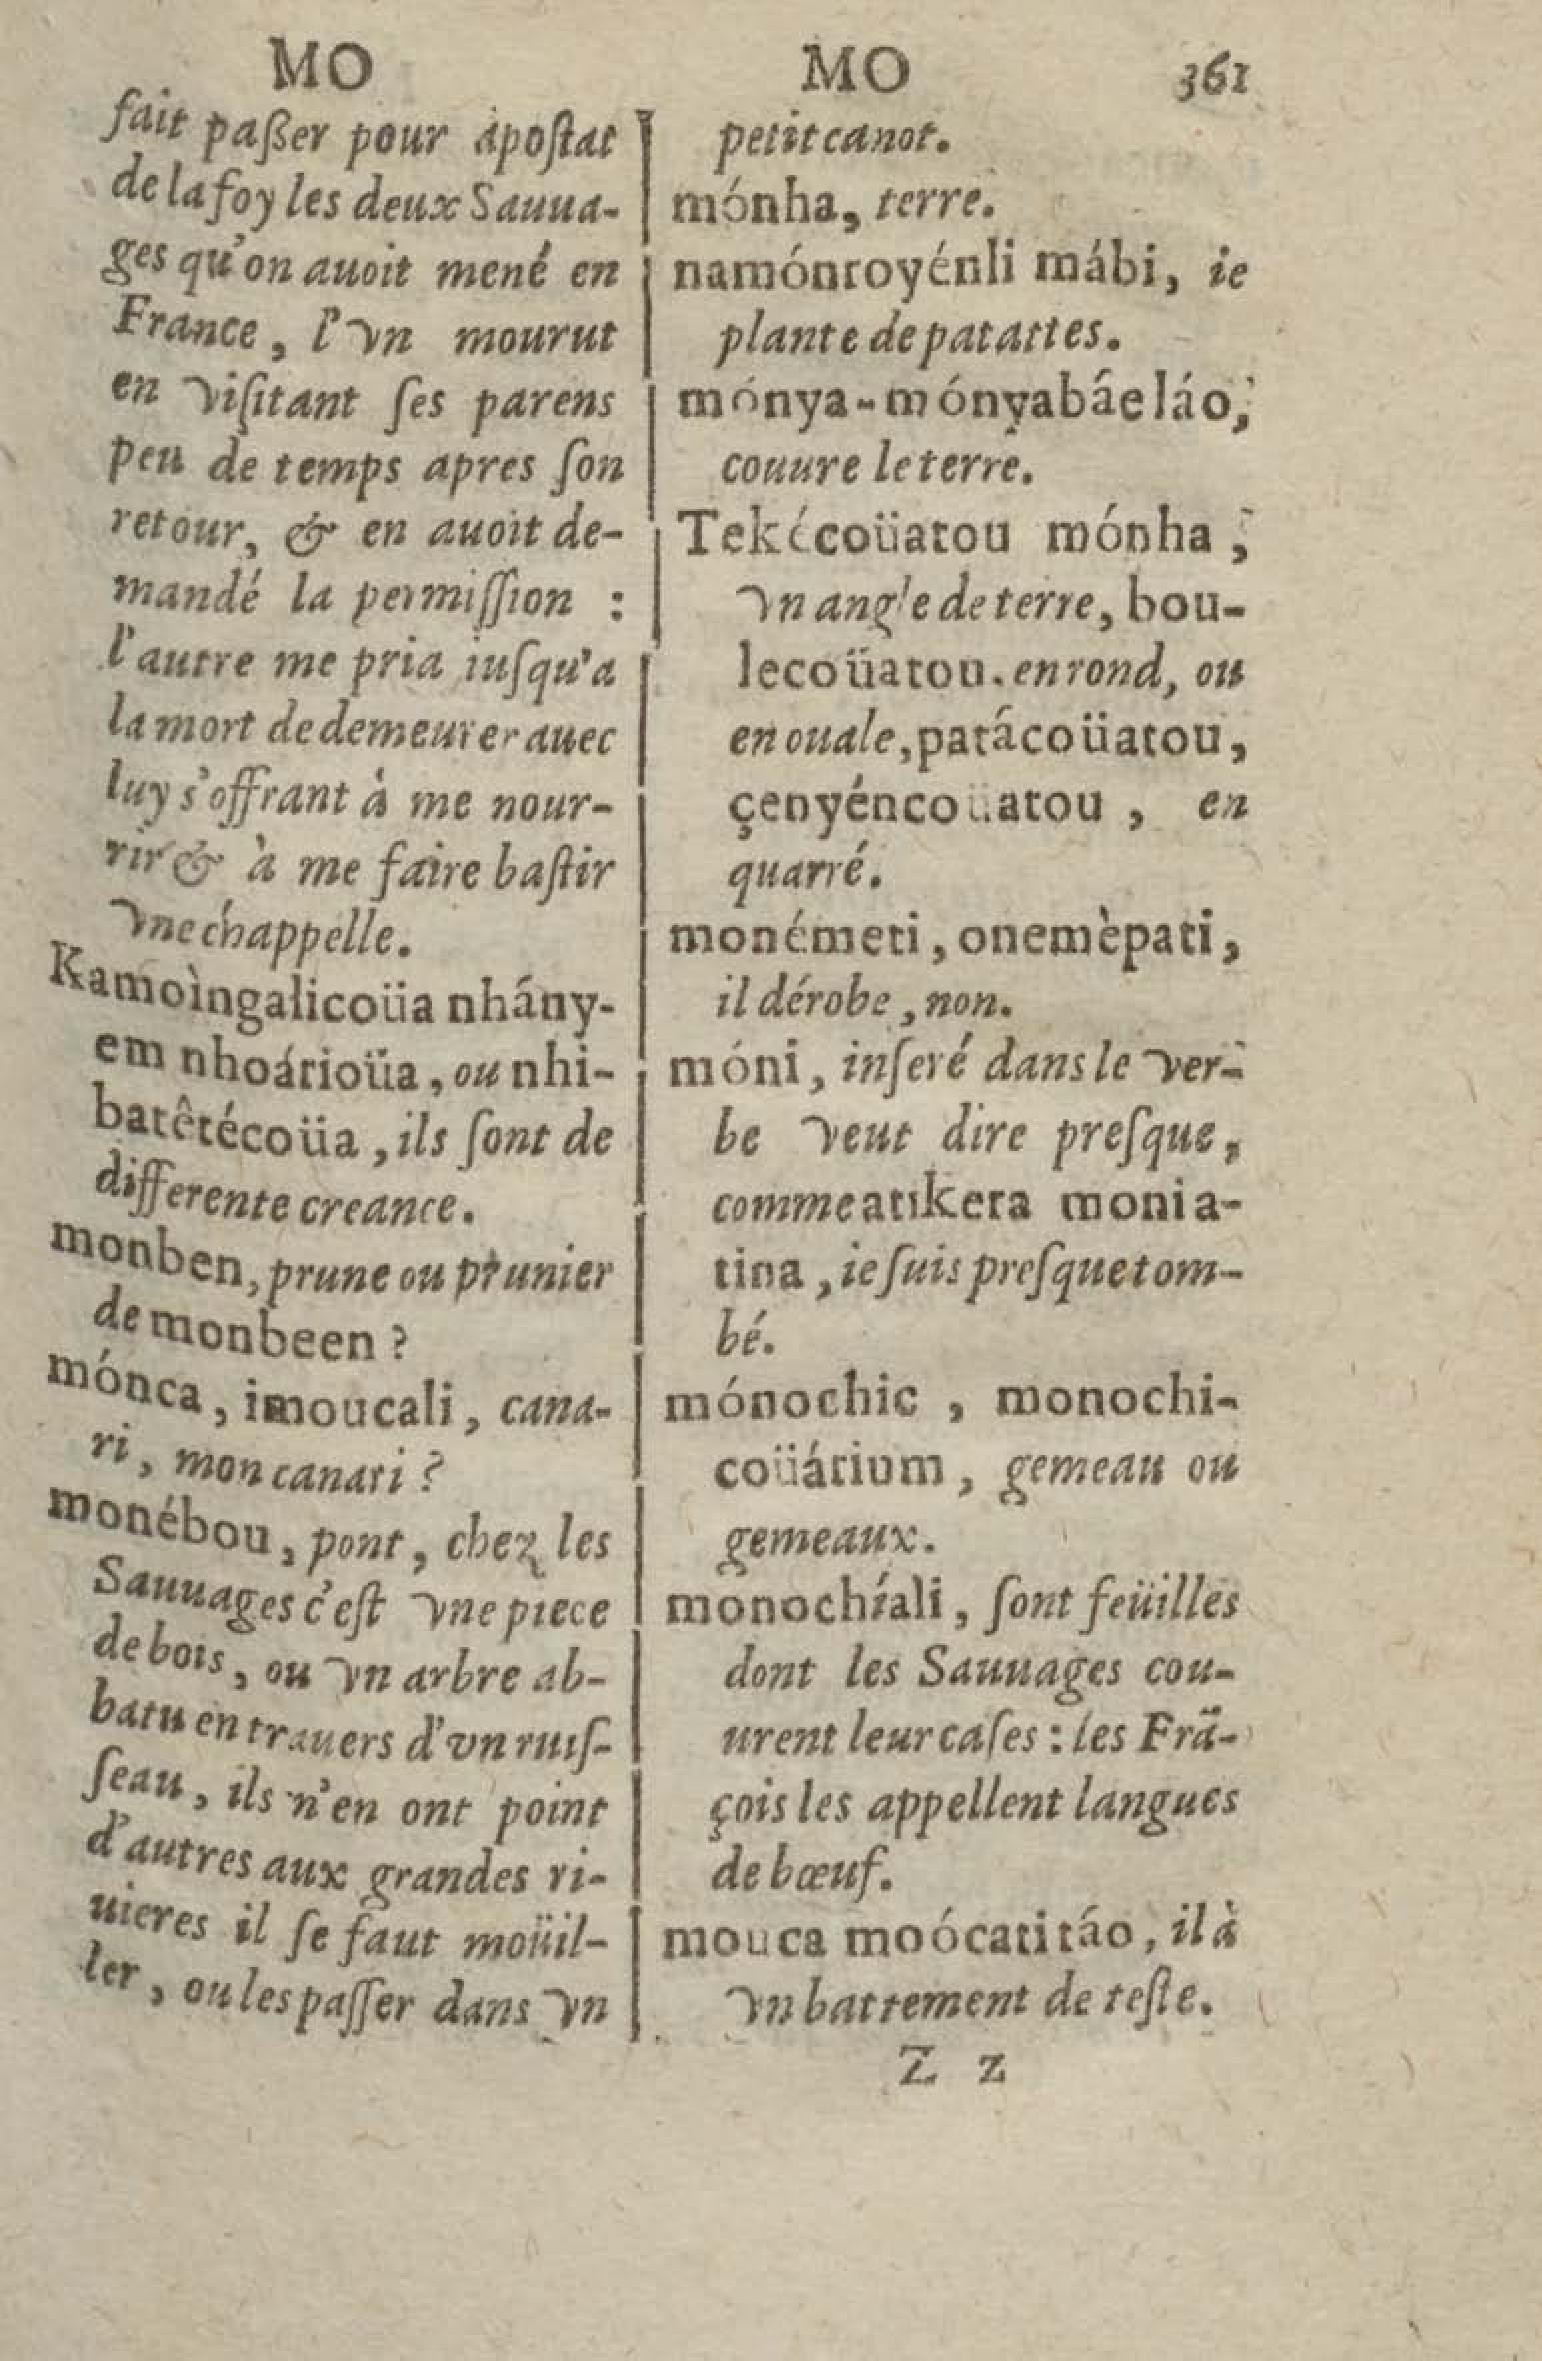 MO
fait paßer pour apoſtat
de la foy les deux Sauua-
ges qu'on auoit mené en
France, l'vn mourut
en viſitant ſes parens
peu de temps apres ſon
retour, & en auoit de-
mandé la permiſſion :
l'autre me pria iuſqu'a
la mort de demeurer auec
luy s'offrant à me nour-
rir & à me faire baſtir
vne chappelle.
Kamoìngalicoüa nhány-
em nhoárioüa, ou nhi-
batêtécoüa, ils ſont de
differente creance.
monben, prune ou prunier
de monbeen ?
mónca, imoucali, cana-
ri, mon canari ?
monébou, pont, chez les
Sauuages c'eſt vne piece
de bois, ou vn arbre ab-
batu en trauers d'vn ruiſ-
ſeau, ils n'en ont point
d'autres aux grandes ri-
uieres il ſe faut moüil-
ler, ou les paſſer dans vn
MO 361
petit canot.
mónha, terre.
namónroyénli mábi, ie
plante de patattes.
mónya-mónyabáe láo,
couure le terre.
Tekécoüatou mónha,
vn angle de terre, bou-
lecoüatou. en rond, ou
en ouale, patácoüatou,
çenyéncoüatou, en
quarré.
monémeti, onemèpati,
il dérobe, non.
móni, inſeré dans le ver-
be veut dire preſque,
comme atıkera monia-
tina, ie ſuis preſque tom-
bé.
mónochic, monochi-
coüárium, gemeau ou
gemeaux.
monochíali, ſont feüilles
dont les Sauuages cou-
urent leur caſes : les Frã-
çois les appellent langues
de bœuf.
mouca moócatitáo, il à
vn battement de teſte.
Z z